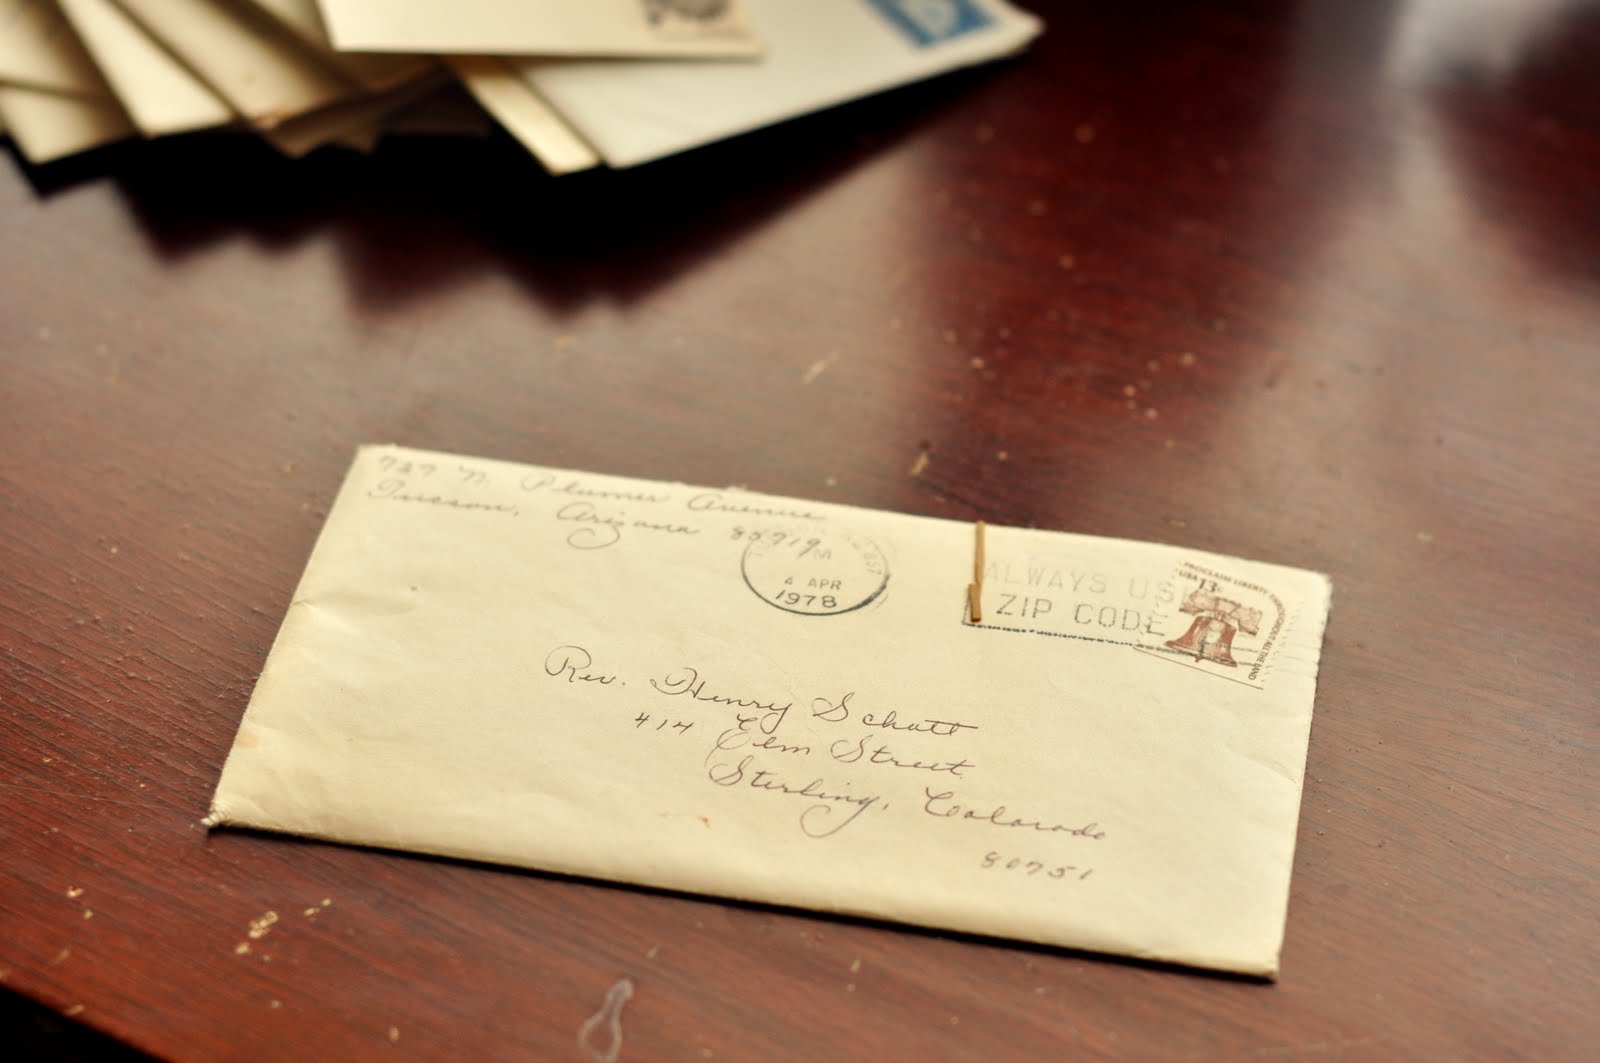 727 N. Plumer Avenue
Tucson, Arizona 85719
4 APR
1978
ALWAYS USE
ZIP CODE
PROCLAIM LIBERTY THROUGHOUT ALL THE LAND
USA 13c
Rev. Henry Schott
414 Elm Street
Sterling, Colorado
80751